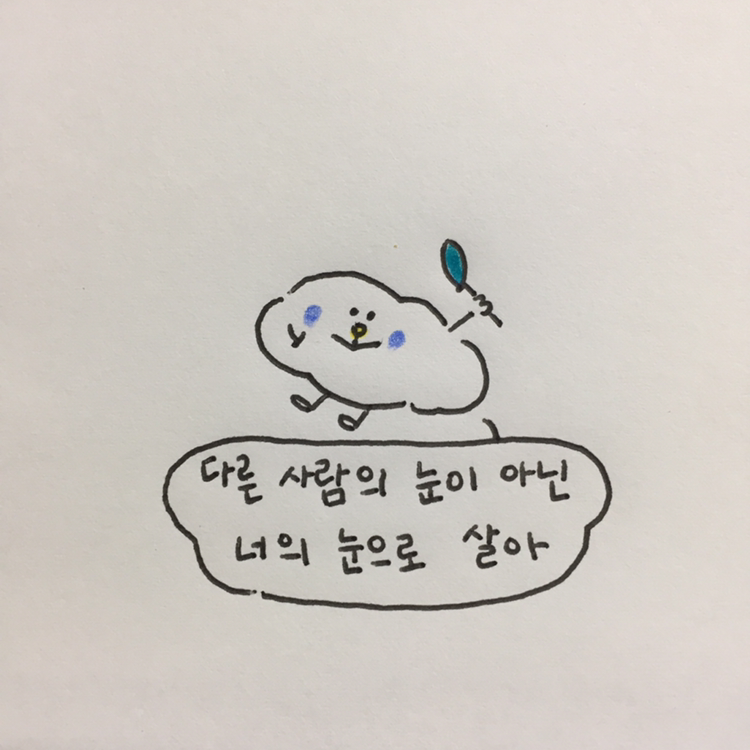 다른 사람의 눈이 아닌
너의 눈으로 살아